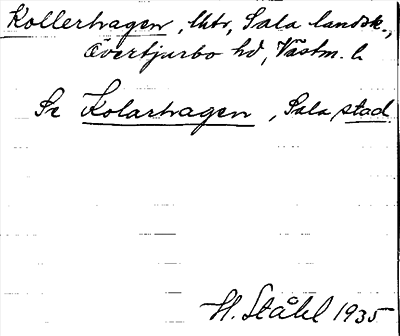 Kollerhagen, lht, Sala landsk.,
Övertjurbo hd, Västm. l.
Se Kolarhagen, Sala stad.
H. Ståhl 1935